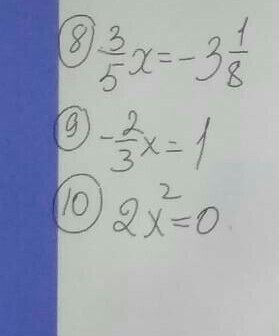 ⑧ 3/5 x = -3 1/8
⑨ -2/3 x = 1
⑩ 2x² = 0